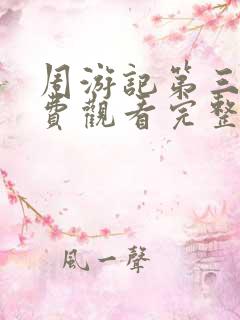 周游記第三
費觀看完整
風一聲